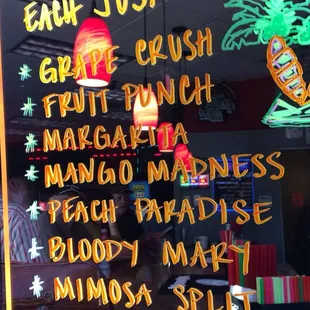 EACH JUS
* GRAPE CRUSH
* FRUIT PUNCH
* MARGARITA
* MANGO MADNESS
* PEACH PARADISE
* BLOODY MARY
* MIMOSA SPLIT